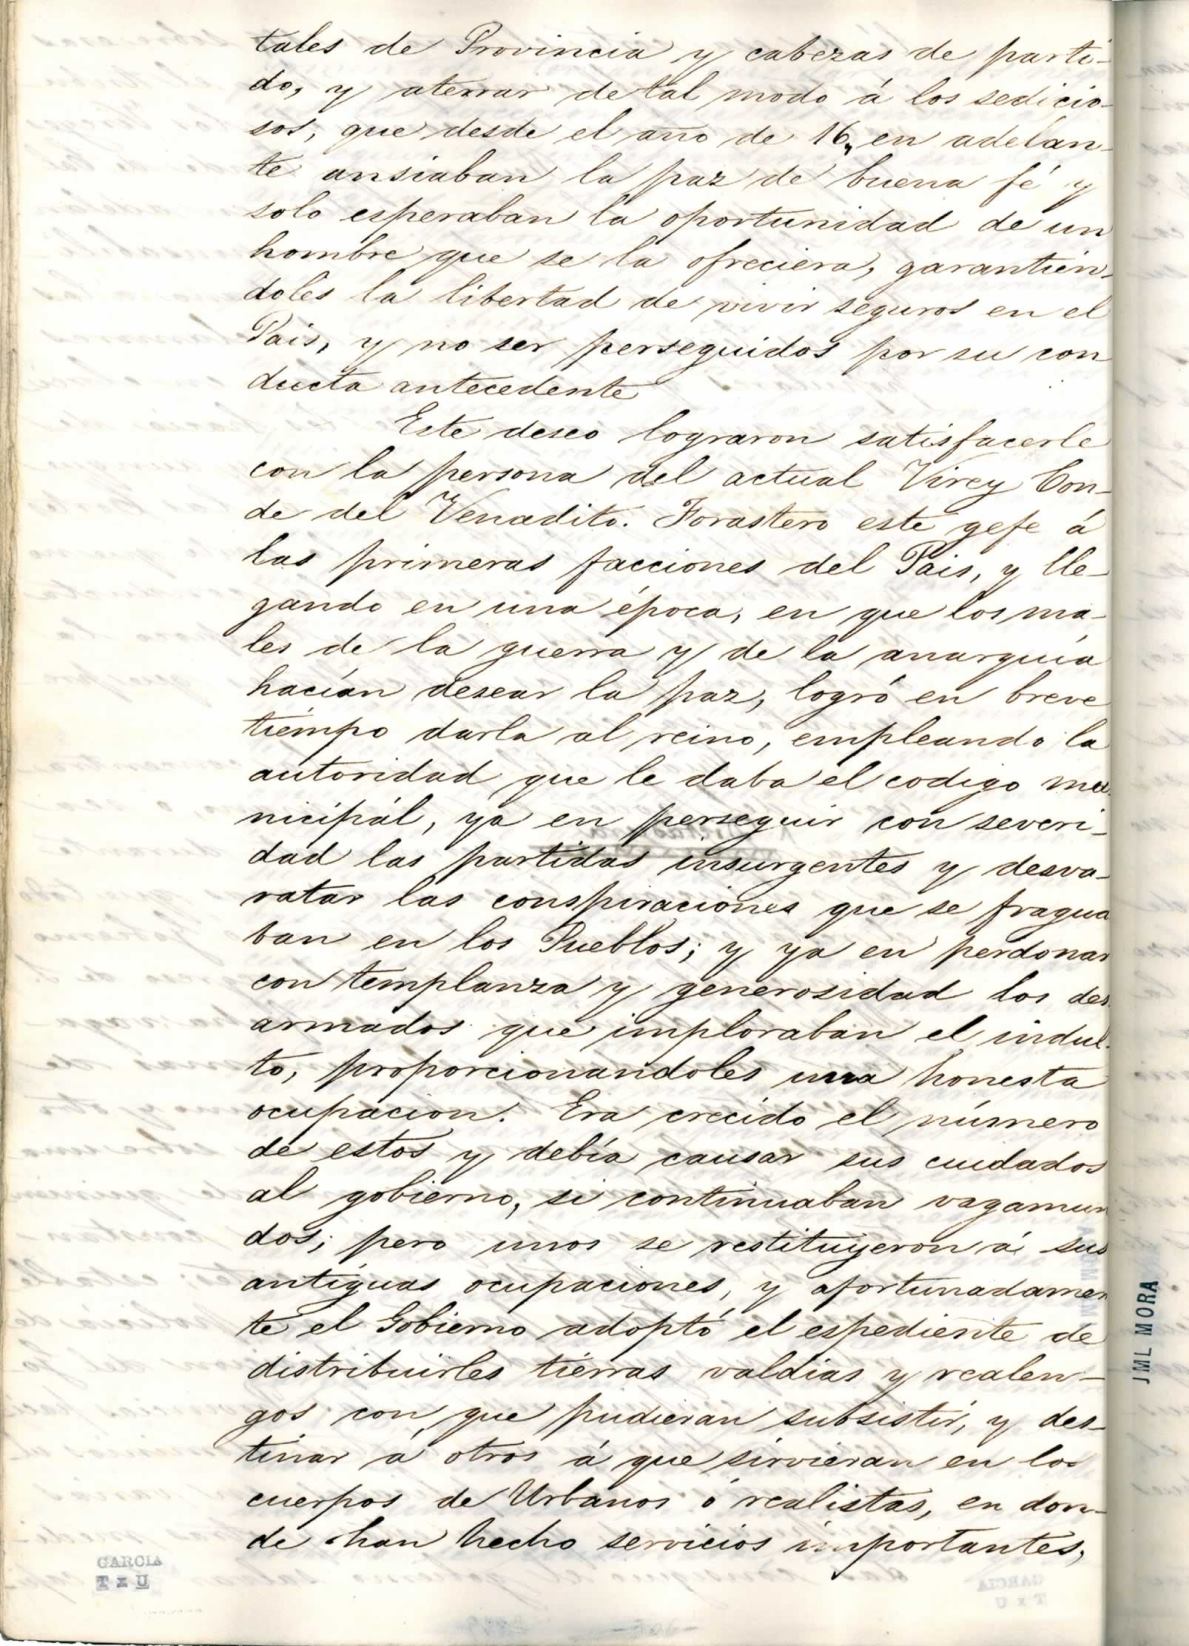 tales de Provincia y cabezas de parti-
do, y aterrar de tal modo á los sedicio-
sos, que desde el año de 16,, en adelan-
te ansiaban la paz de buena fé y
solo esperaban la oportunidad de un
hombre que se la ofreciera, garantien-
doles la libertad de vivir seguros en el
Pais, y no ser perseguidos por su con
ducta antecedente
Este deseo lograron satisfacerle
con la persona del actual Virey Con-
de del Venadito. Forastero este gefe á
las primeras facciones del Pais, y lle-
gando en una época, en que los ma-
les de la guerra y de la anarquia
hacían desear la paz, logró en breve
tiempo darla al reino, empleando la
autoridad que le daba el codigo mu-
nicipál, ya en perseguir con severi-
dad las partidas insurgentes y desva-
ratar las conspiraciones que se fragua
ban en los Pueblos; y ya en perdonar
con templanza y generosidad los des
armados que imploraban el indul-
to, proporcionandoles una honesta
ocupacion. Era crecido el número
de estos y debía causar sus cuidados
al gobierno, si continuaban vagamun
dos; pero unos se restituyeron á sus
antíguas ocupaciones, y afortunadamen
te el Gobierno adoptó el espediente de
distribuirles tierras valdias y realen-
gos con que pudieran subsistir, y des-
tinar á otros á que sirvieran en los
cuerpos de Urbanos ó realistas, en don-
de han hecho servicios importantes,
GARCIA
T x U
JML MORA